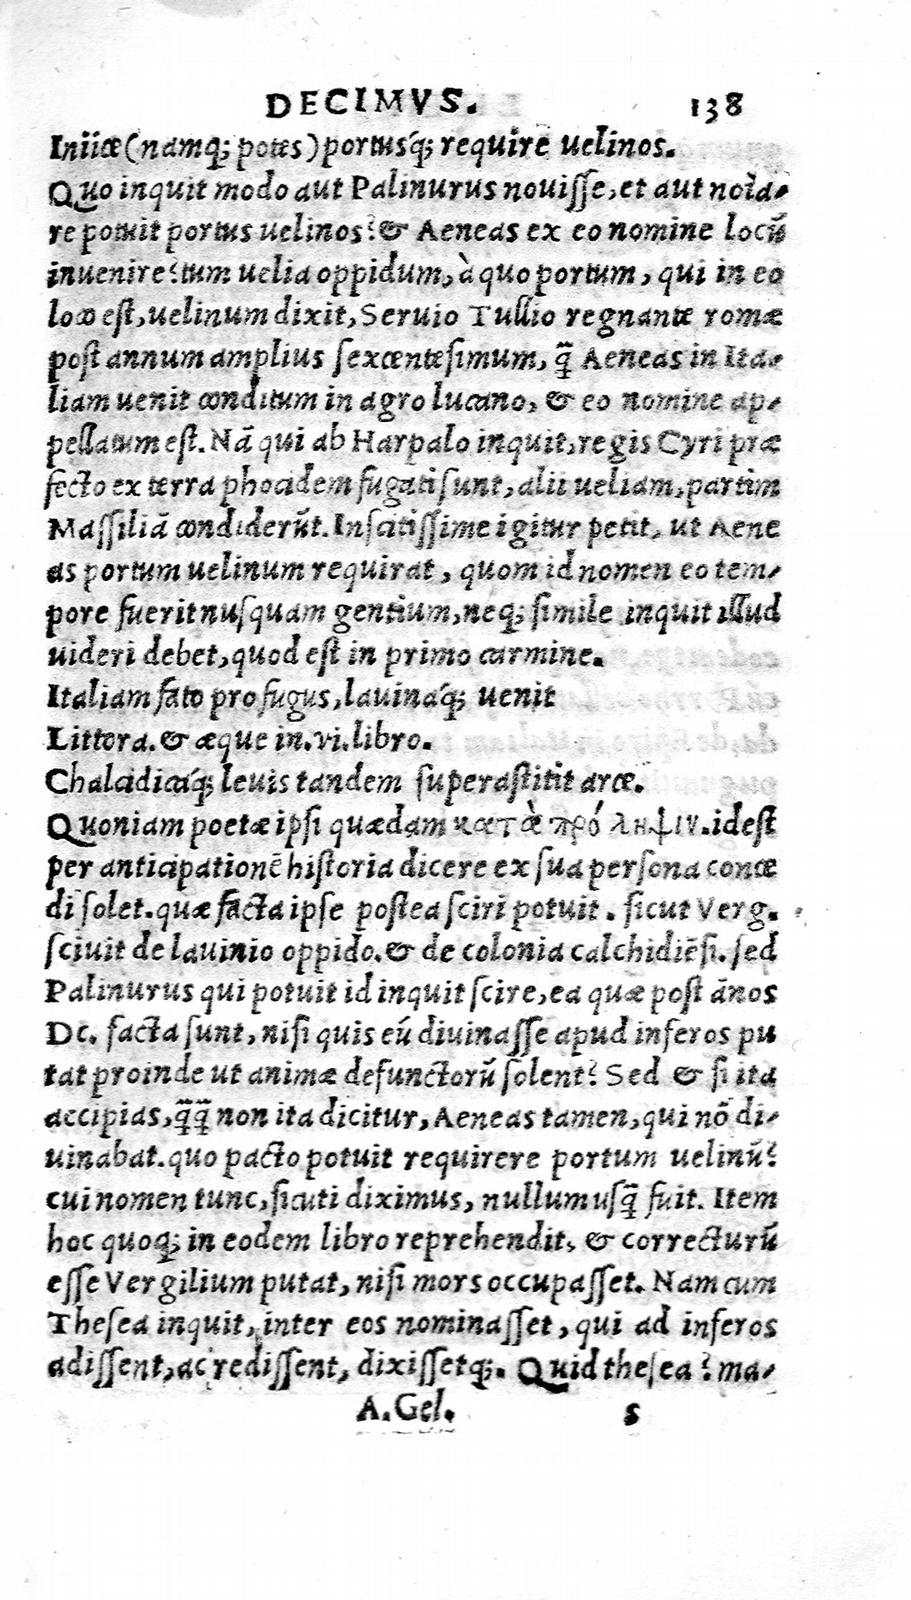 DECIMVS. 138
Iniice (namq; potes) portusq́; require uelinos.
Quo inquit modo aut Palinurus nouiſſe, et aut noĩa⸗
re potuit portus uelinos? & Aeneas ex eo nomine locũ
inuenire? tum uelia oppidum, à quo portum, qui in eo
loco eſt, uelinum dixit, Seruio Tullio regnante romæ
poſt annum amplius ſexcenteſimum, q̃ Aeneas in Ita⸗
liam uenit conditum in agro lucano, & eo nomine ap⸗
pellatum eſt. Nã qui ab Harpalo inquit, regis Cyri præ
fecto ex terra phocidem fugati ſunt, alii ueliam, partim
Maſſiliã condiderũt. Inſcitiſſime igitur petit, ut Aene
as portum uelinum requirat, quom id nomen eo tem⸗
pore fuerit nuſquam gentium, neq; ſimile inquit illud
uideri debet, quod eſt in primo carmine.
Italiam fato profugus, lauinaq́; uenit
Littora. & æque in .vi. libro.
Chalcidicaq́; leuis tandem ſuperaſtitit arce.
Quoniam poetæ ipſi quædam κατὰ πρόληψιν. ideſt
per anticipationẽ hiſtoria dicere ex ſua perſona conce
di ſolet. quæ facta ipſe poſtea ſciri potuit. ſicut Verg.
ſciuit de lauinio oppido. & de colonia calchidiẽſi. ſed
Palinurus qui potuit id inquit ſcire, ea quæ poſt ãnos
Dc. facta ſunt, niſi quis eũ diuinaſſe apud inferos pu
tat proinde ut animæ defunctorũ ſolent? Sed & ſi ita
accipias, q̃q̃ non ita dicitur, Aeneas tamen, qui nõ di⸗
uinabat. quo pacto potuit requirere portum uelinũ?
cui nomen tunc, ſicuti diximus, nullum uſq̃ fuit. Item
hoc quoq; in eodem libro reprehendit, & correcturũ
eſſe Vergilium putat, niſi mors occupaſſet. Nam cum
Theſea inquit, inter eos nominaſſet, qui ad inferos
adiſſent, ac rediſſent, dixiſſetq;. Quid theſea? ma⸗
A. Gel. s